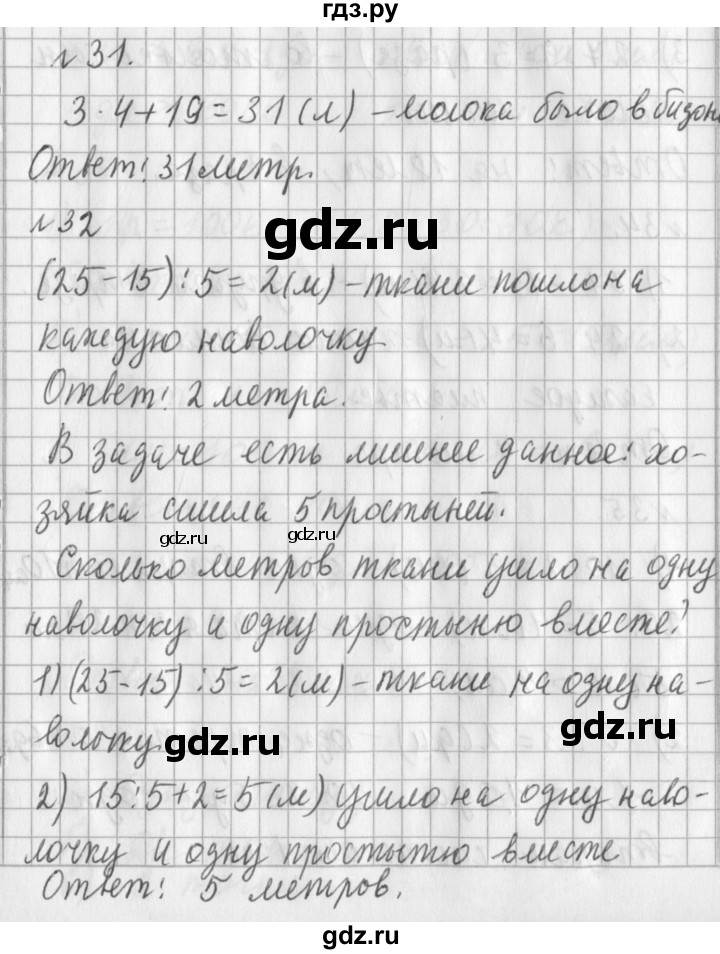 гдз.ру
№31.
3·4+19=31(л) – молока было в бидон
Ответ: 31 метр.
№32
gdz.ru
(25-15):5=2(м) – ткани пошло на
каждую наволочку
Ответ: 2 метра.
В задаче есть лишнее данное: хо-
зяйка сшила 5 простыней.
gdz.ru gdz.ru
Сколько метров ткани ушло на одну
наволочку и одну простыню вместе?
1) (25-15):5=2(м) – ткани на одну на-
волочку.
gdz.ru gdz.ru
2) 15:5+2=5(м) ушло на одну наво-
лочку и одну простыню вместе
Ответ: 5 метров.
gdz.ru